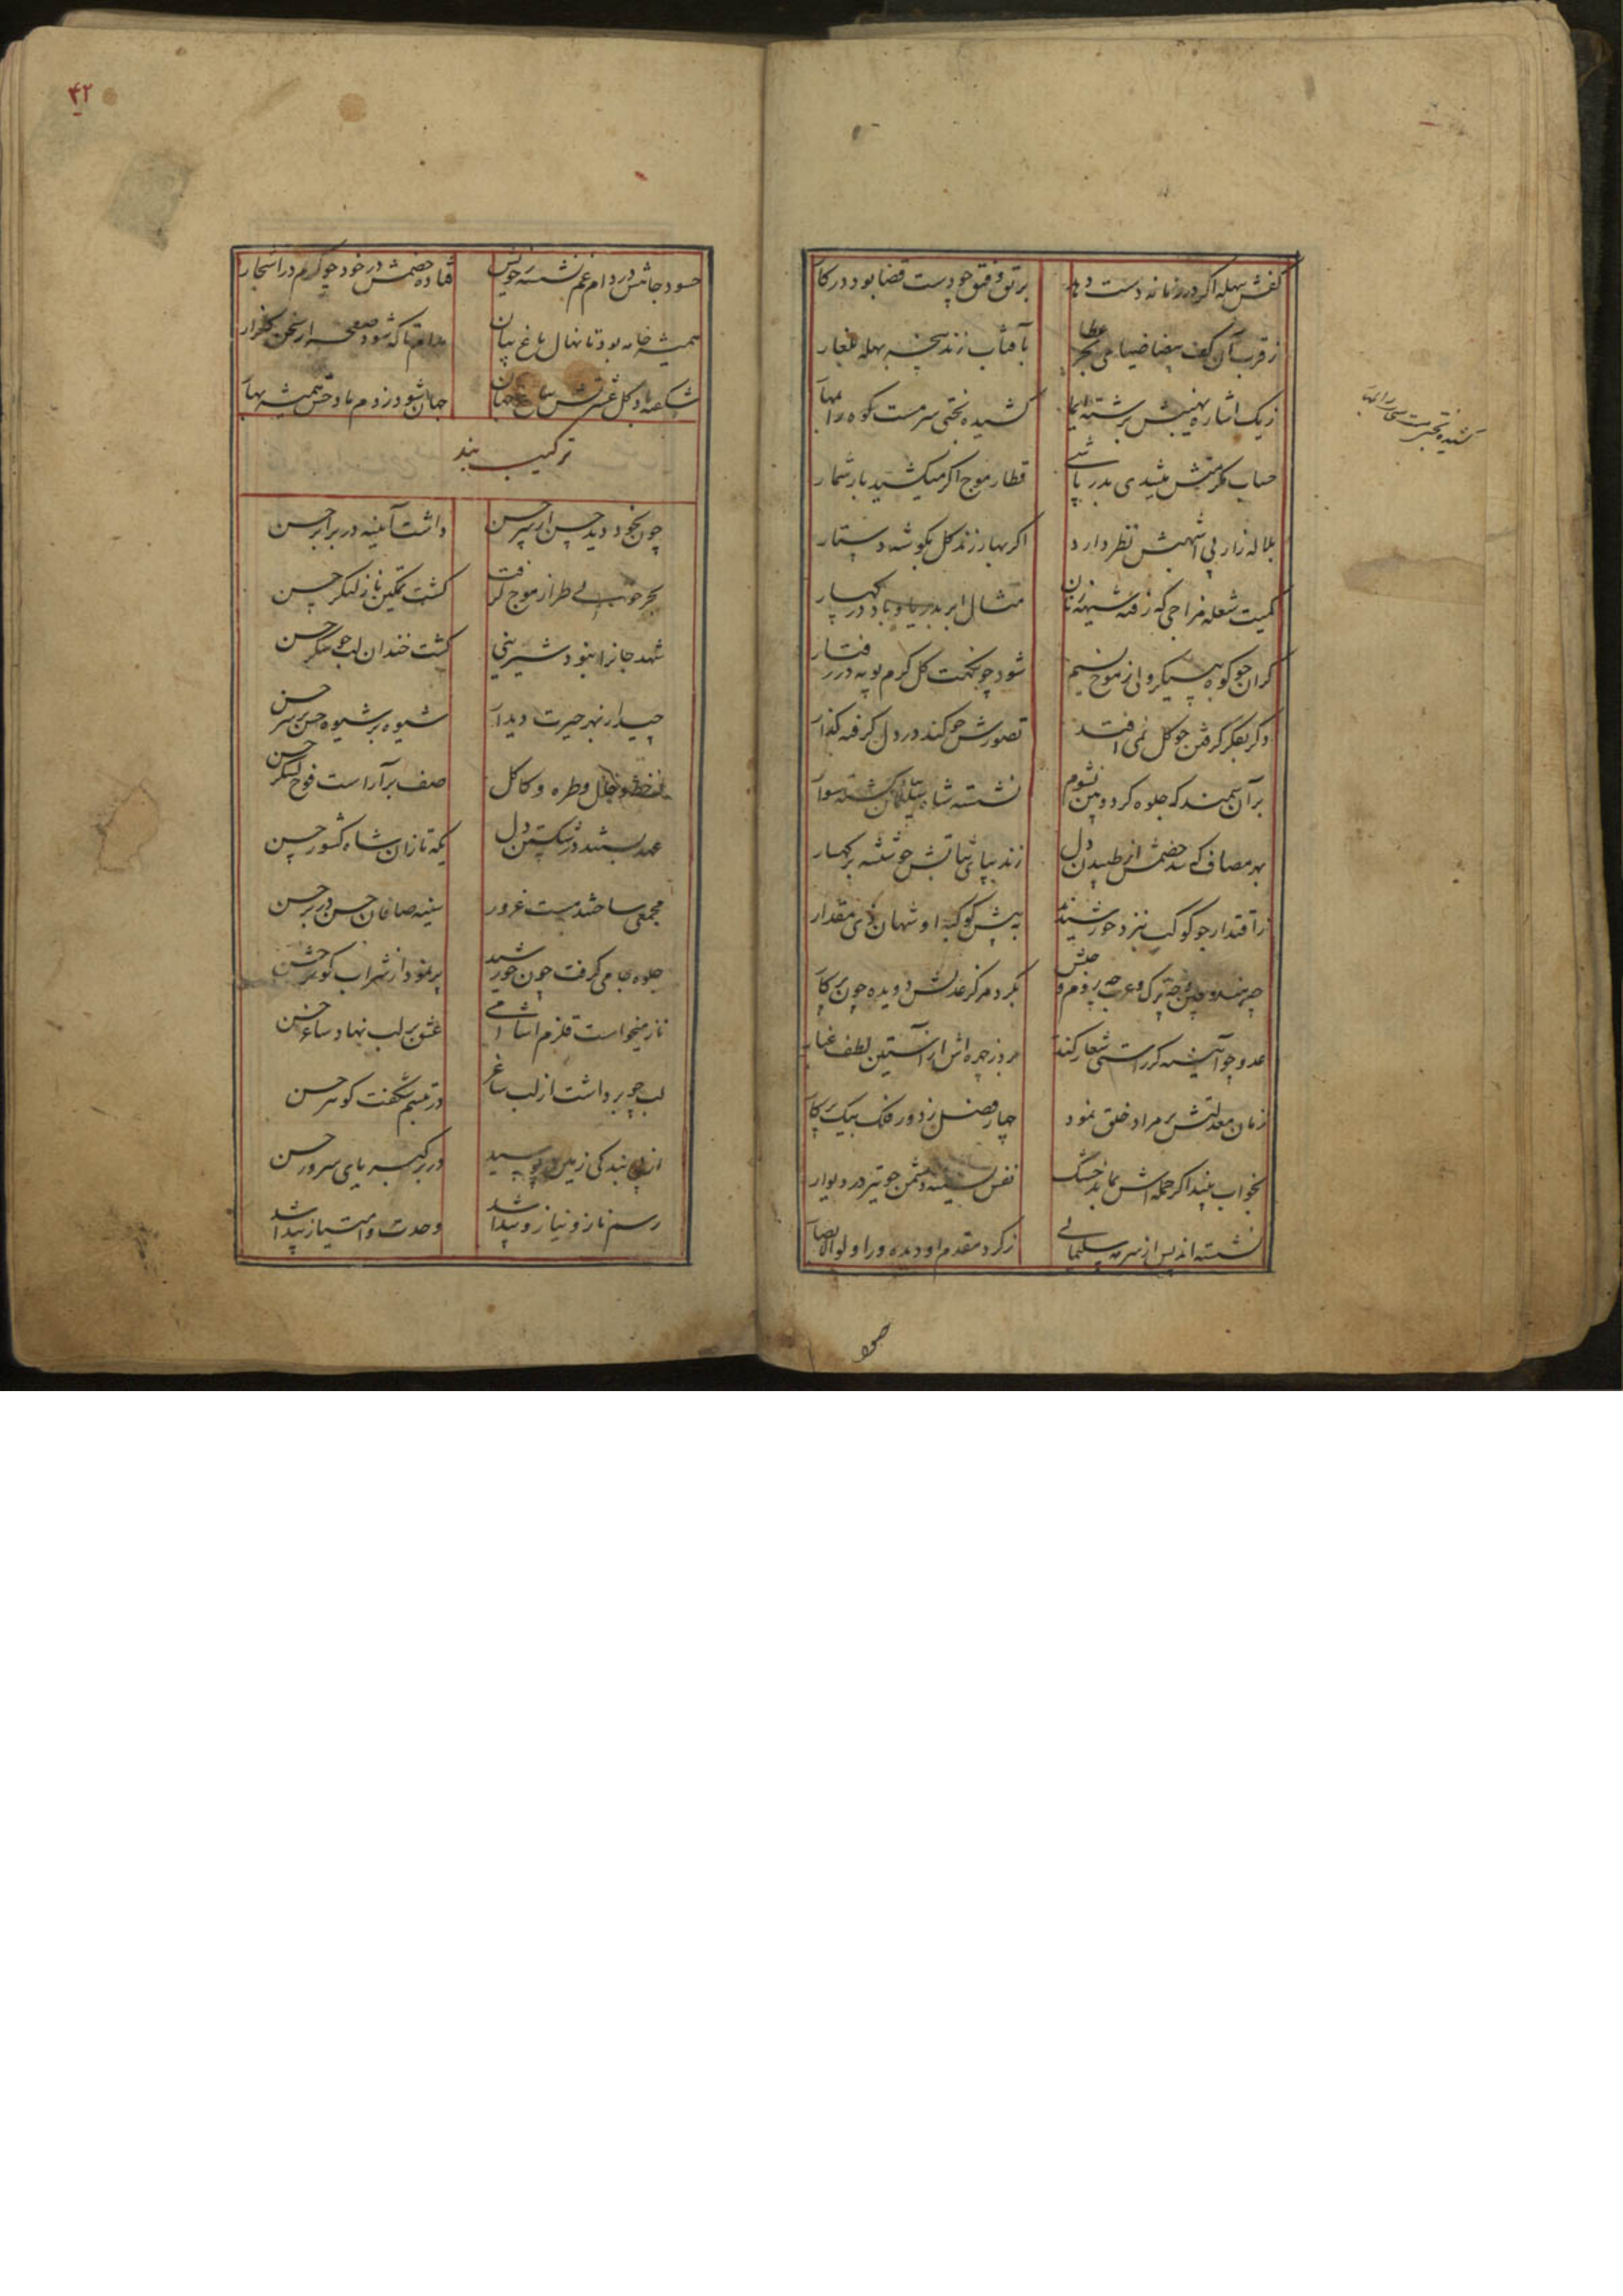 کفش بهله اگر در زمانه دست دهد
برتق و فتق چو دست قضا بود در کار
ز قرب آن کف بیضا ضیا می بحر عطا
بآفتاب زند پنجه بهله بلغار
ز یک اشاره نهیبش برشته ایما
کشیده بختی سرمست کوه را بمهار
حساب مکرمتش میشدی بدریا شی
قطار موج اگر میکشید بار شمار
بلاله زار پی اشهبش نظر دارد
اگر بهار زند گل بگوشه دستار
کمیت شعله مزاجی که رفته شیهه زنان
مثال ابر بدریا و باد در کهسار
گران چو کوه به پیکر ولی ز موج نسیم
شود چو نکهت گل گرم پویه در رفتار
دگر بفکر گرفتن چو گل نمی افتد
تصورش چو کند در دل گرفته گذار
بر آن سمند که جلوه کرد و بین نشوم
نشسته شاه سلیمان گشته سوار
بهر مصاف که شد خصمش از طپیدن دل
زند بپای ثباتش چو تیشه بر کهسار
ز اقتدار چو کوکب بنزد خورشیدند
به پیش کوکبه او شهان ذی مقدار
چه هند و چین و چه ترک و عرب چه روم و حبش
بگرد مرکز عدلش دویده چون پرکار
عدو چو آینه گر راستی شعار کند
برد ز چهره اش از آستین لطف غبار
زمان معدلتش بر مراد خلق نمود
چهار فصل ز دور فلک بیک پرکار
بخواب بیند اگر حمله اش بماند خشک
نفس بسینه دشمن چو تیر در دیوار
نشسته اند پس از سرمه سلیمانی
ز گرد مقدم او دیده ور اولوالابصار
کشیده بختی سرمستی را بمهار
۴۲
حسود جاهش در دام غم نشسته ز خویش
فتاده خصمش در خود چو کرم در اشجار
همیشه خامه بود تا نهال باغ بیان
مدام تا که شود صفحه از سخن گلزار
شکفته باد گل عشرتش بباغ جهان
جهان شود ز دم باد خوش همیشه بهار
ترکیب بند
چون بخود دید حسن از سر حسن
داشت آئینه در برابر حسن
بحر خوبی طراز موج گرفت
گشت تمکین ناز لنگر حسن
شهد جانرا نبود شیرینی
گشت خندان لب چو شکر حسن
چید از بهر حیرت دیدار
شیوه بر شیوه حسن بر سر حسن
خط و خال و طره و کاکل
صف برآراست فوج لشکر حسن
عهد بستند در شکستن دل
یکه تازان شاه کشور حسن
مجمعی ساختند مست غرور
سینه صافان حسن در بر حسن
جلوه جامی گرفت چون خورشید
پر نمود از شراب کوثر حسن
ناز میخواست قلزم آشامی
عشق بر لب نهاد ساغر حسن
لب چو برداشت از لب ساغر
در تبسم شگفت گوهر حسن
از پی بندگی زمین بوسید
در بر کبریای سرور حسن
رسم ناز و نیاز و پیدا شد
وحدت و امتیاز پیدا شد